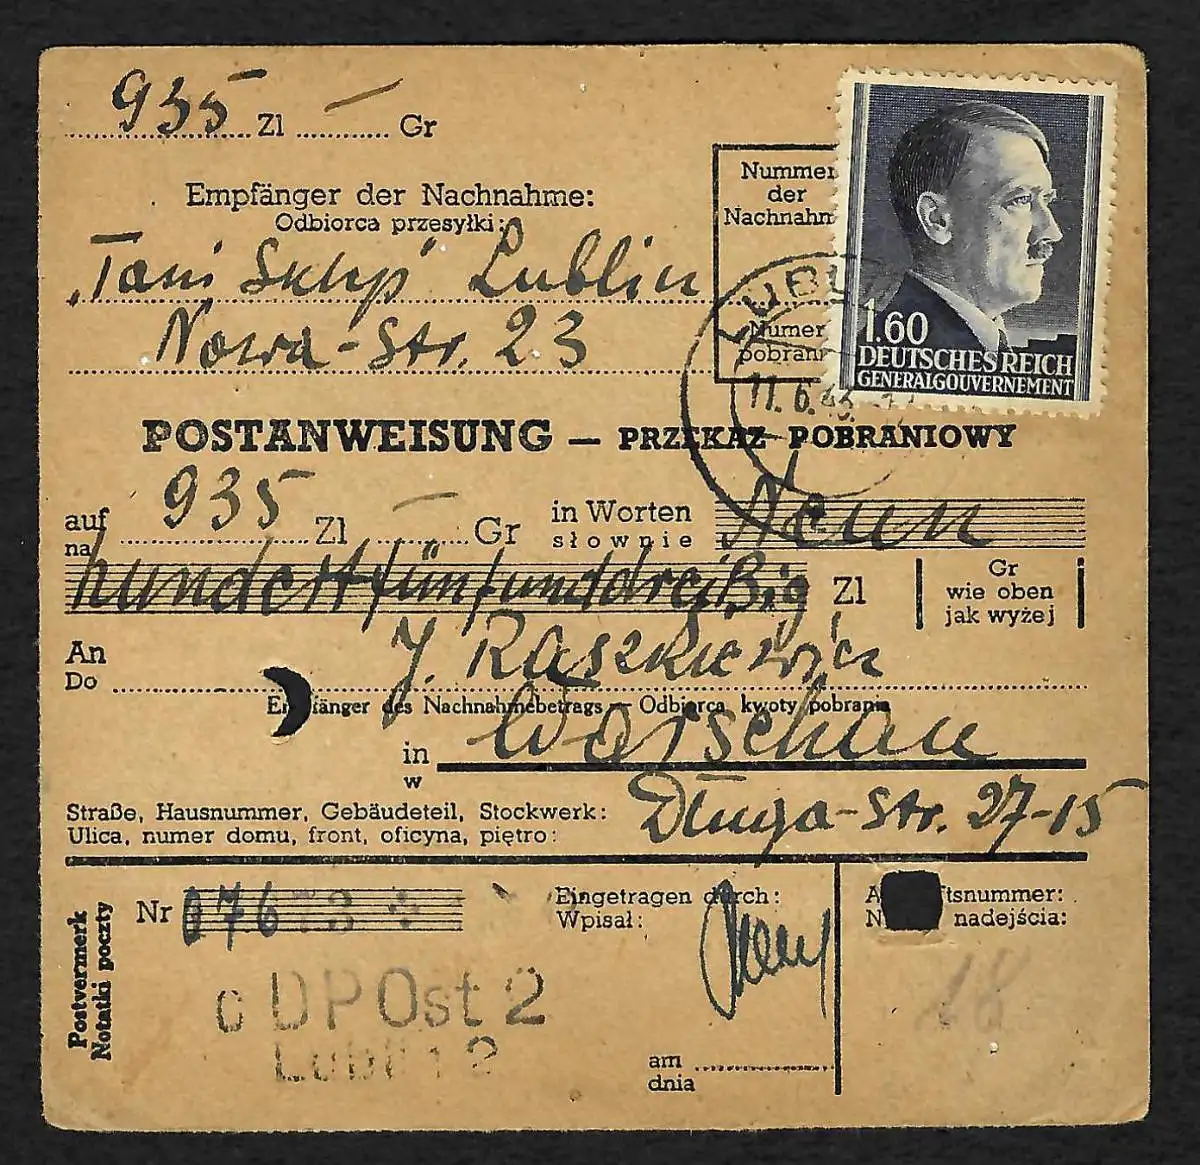 935 Zl — Gr
Empfänger der Nachnahme:
Odbiorca przesyłki:
„Tani Sklep" Lublin
Nowa-Str. 23
Nummer
der
Nachnahm
Numer
pobrani
LUBLI
11. 6. 43.
1.60
DEUTSCHES REICH
GENERALGOUVERNEMENT
POSTANWEISUNG – PRZEKAZ POBRANIOWY
auf 935 Zl — Gr in Worten Neun
na słownie
hundertfünfunddreißig Zl
Gr
wie oben
jak wyżej
An J. Raszkiewicz
Do
Em fänger des Nachnahmebetrags – Odbiorca kwoty pobrania
in Warschau
w
Straße, Hausnummer, Gebäudeteil, Stockwerk:
Ulica, numer domu, front, oficyna, piętro:
Długa-Str. 27-15
Postvermerk
Notatki poczty
Nr 076
Eingetragen durch:
Wpisał:
A ftsnummer:
N nadejścia:
18
DPOst 2
Lublin 2
am
dnia